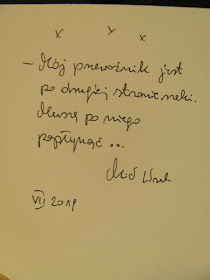 x x x
– Mój przewoźnik jest
po drugiej stronie rzeki.
Muszę po niego
popłynąć ...
VII 2019